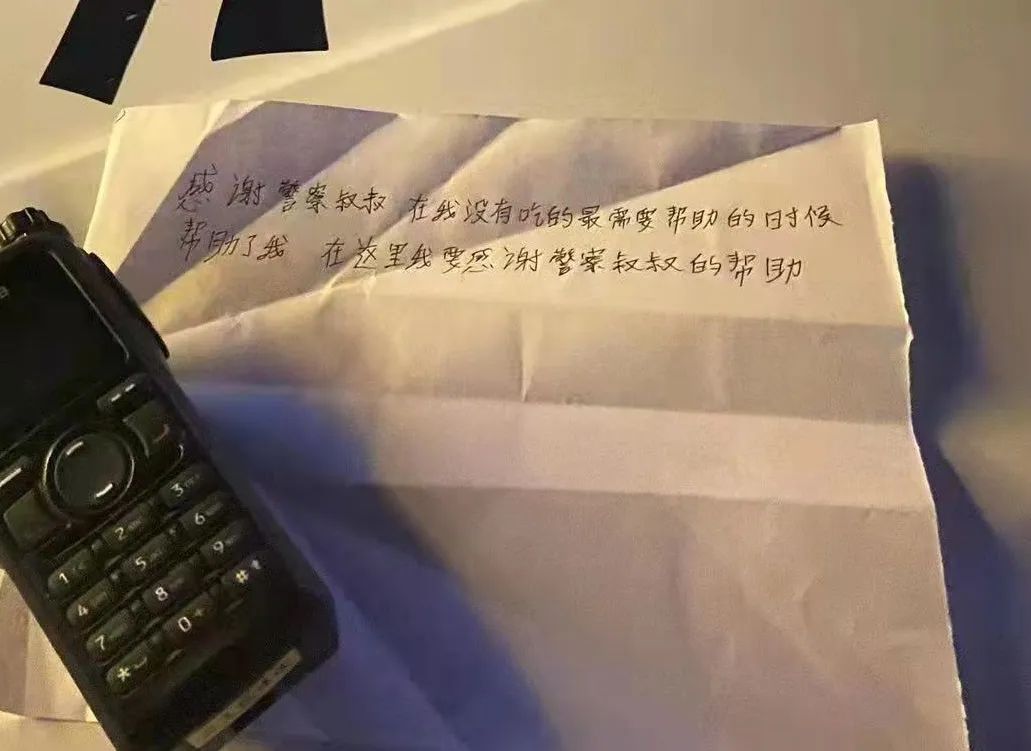 感谢警察叔叔 在我没有吃的最需要帮助的时候
帮助了我 在这里我要感谢警察叔叔的帮助
1
2
3
4
5
6
7
8
9
*
0+
#